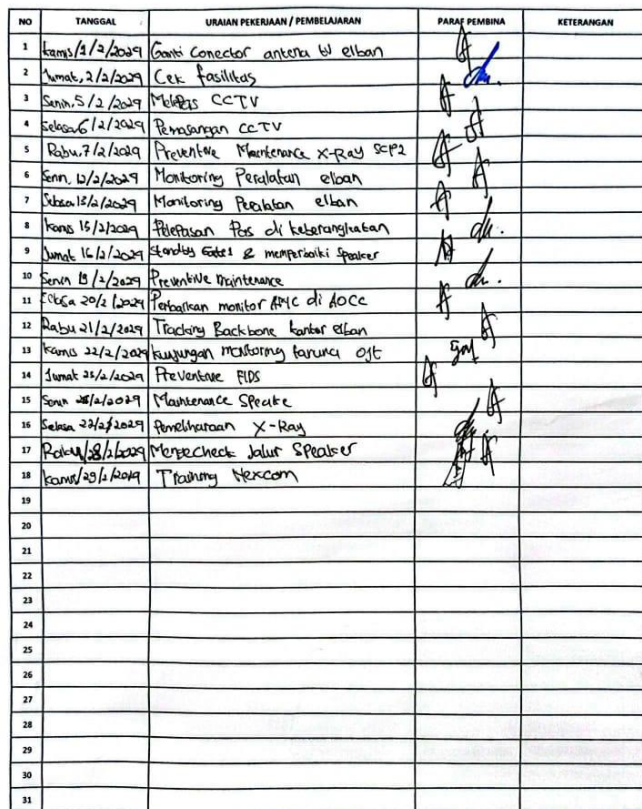 NO TANGGAL URAIAN PEKERJAAN / PEMBELAJARAN PARAF PEMBINA KETERANGAN
1 Kamis/1/2/2029 Ganti Conector antena tv elban
2 Jumat, 2/2/2029 Cek fasilitas
3 Senin, 5/2/2029 Melepas CCTV
4 Selasa 6/2/2029 Pemasangan CCTV
5 Rabu, 7/2/2029 Preventive Maintenance X-Ray SCP2
6 Senin, 12/2/2029 Monitoring Peralatan elban
7 Selasa 13/2/2029 Monitoring Peralatan elban
8 Kamis 15/2/2029 Pelepasan Pas di keberangkatan
9 Jumat 16/2/2029 Standby & memperbaiki Speaker
10 Senin 19/2/2029 Preventive Maintenance
11 Selasa 20/2/2029 Perbaikan monitor di AOCC
12 Rabu 21/2/2029 Tracking Backbone kantor elban
13 Kamis 22/2/2029 kunjungan monitoring taruna OJT
14 Jumat 2029 Preventive FIDS
15 Senin 2029 Maintenance Speake
16 Selasa 2029 Pemeliharaan X-Ray
17 28/2/2029 Mengecheck Jalur Speaker
18 Kamis/29/2/2029 Training Nexcom
19
20
21
22
23
24
25
26
27
28
29
30
31